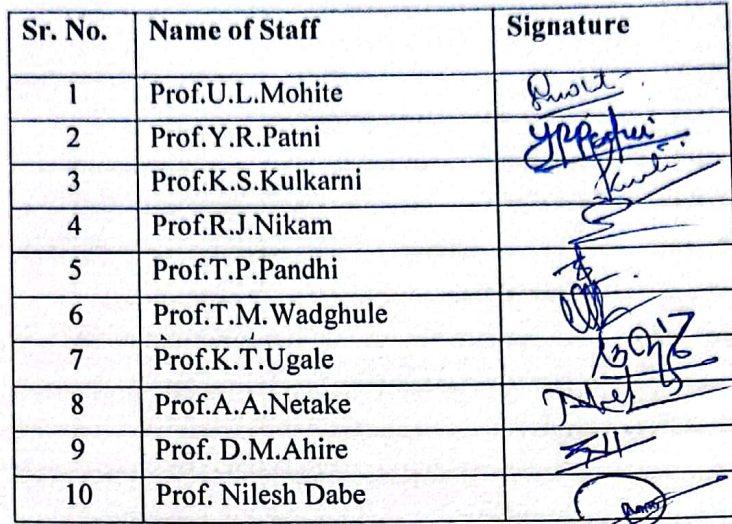 Sr. No. Name of Staff Signature
1 Prof.U.L.Mohite
2 Prof.Y.R.Patni
3 Prof.K.S.Kulkarni
4 Prof.R.J.Nikam
5 Prof.T.P.Pandhi
6 Prof.T.M.Wadghule
7 Prof.K.T.Ugale
8 Prof.A.A.Netake
9 Prof. D.M.Ahire
10 Prof. Nilesh Dabe